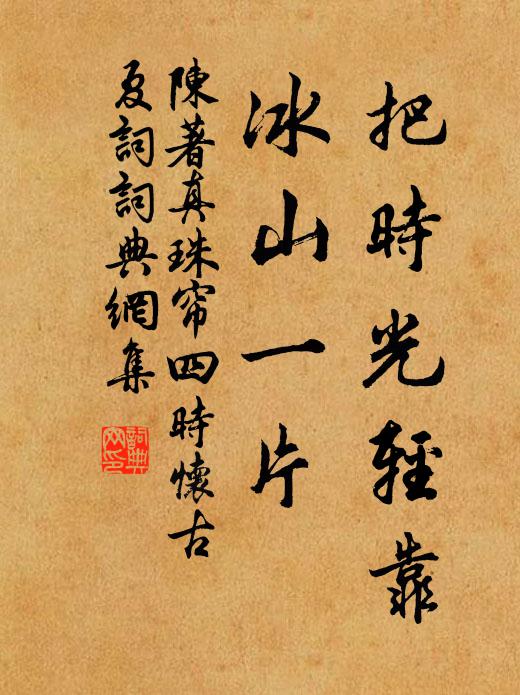 把時光輕靠
冰山一片
陳著真珠帘四時懷古
夏詞詞典網集
詞典
网印